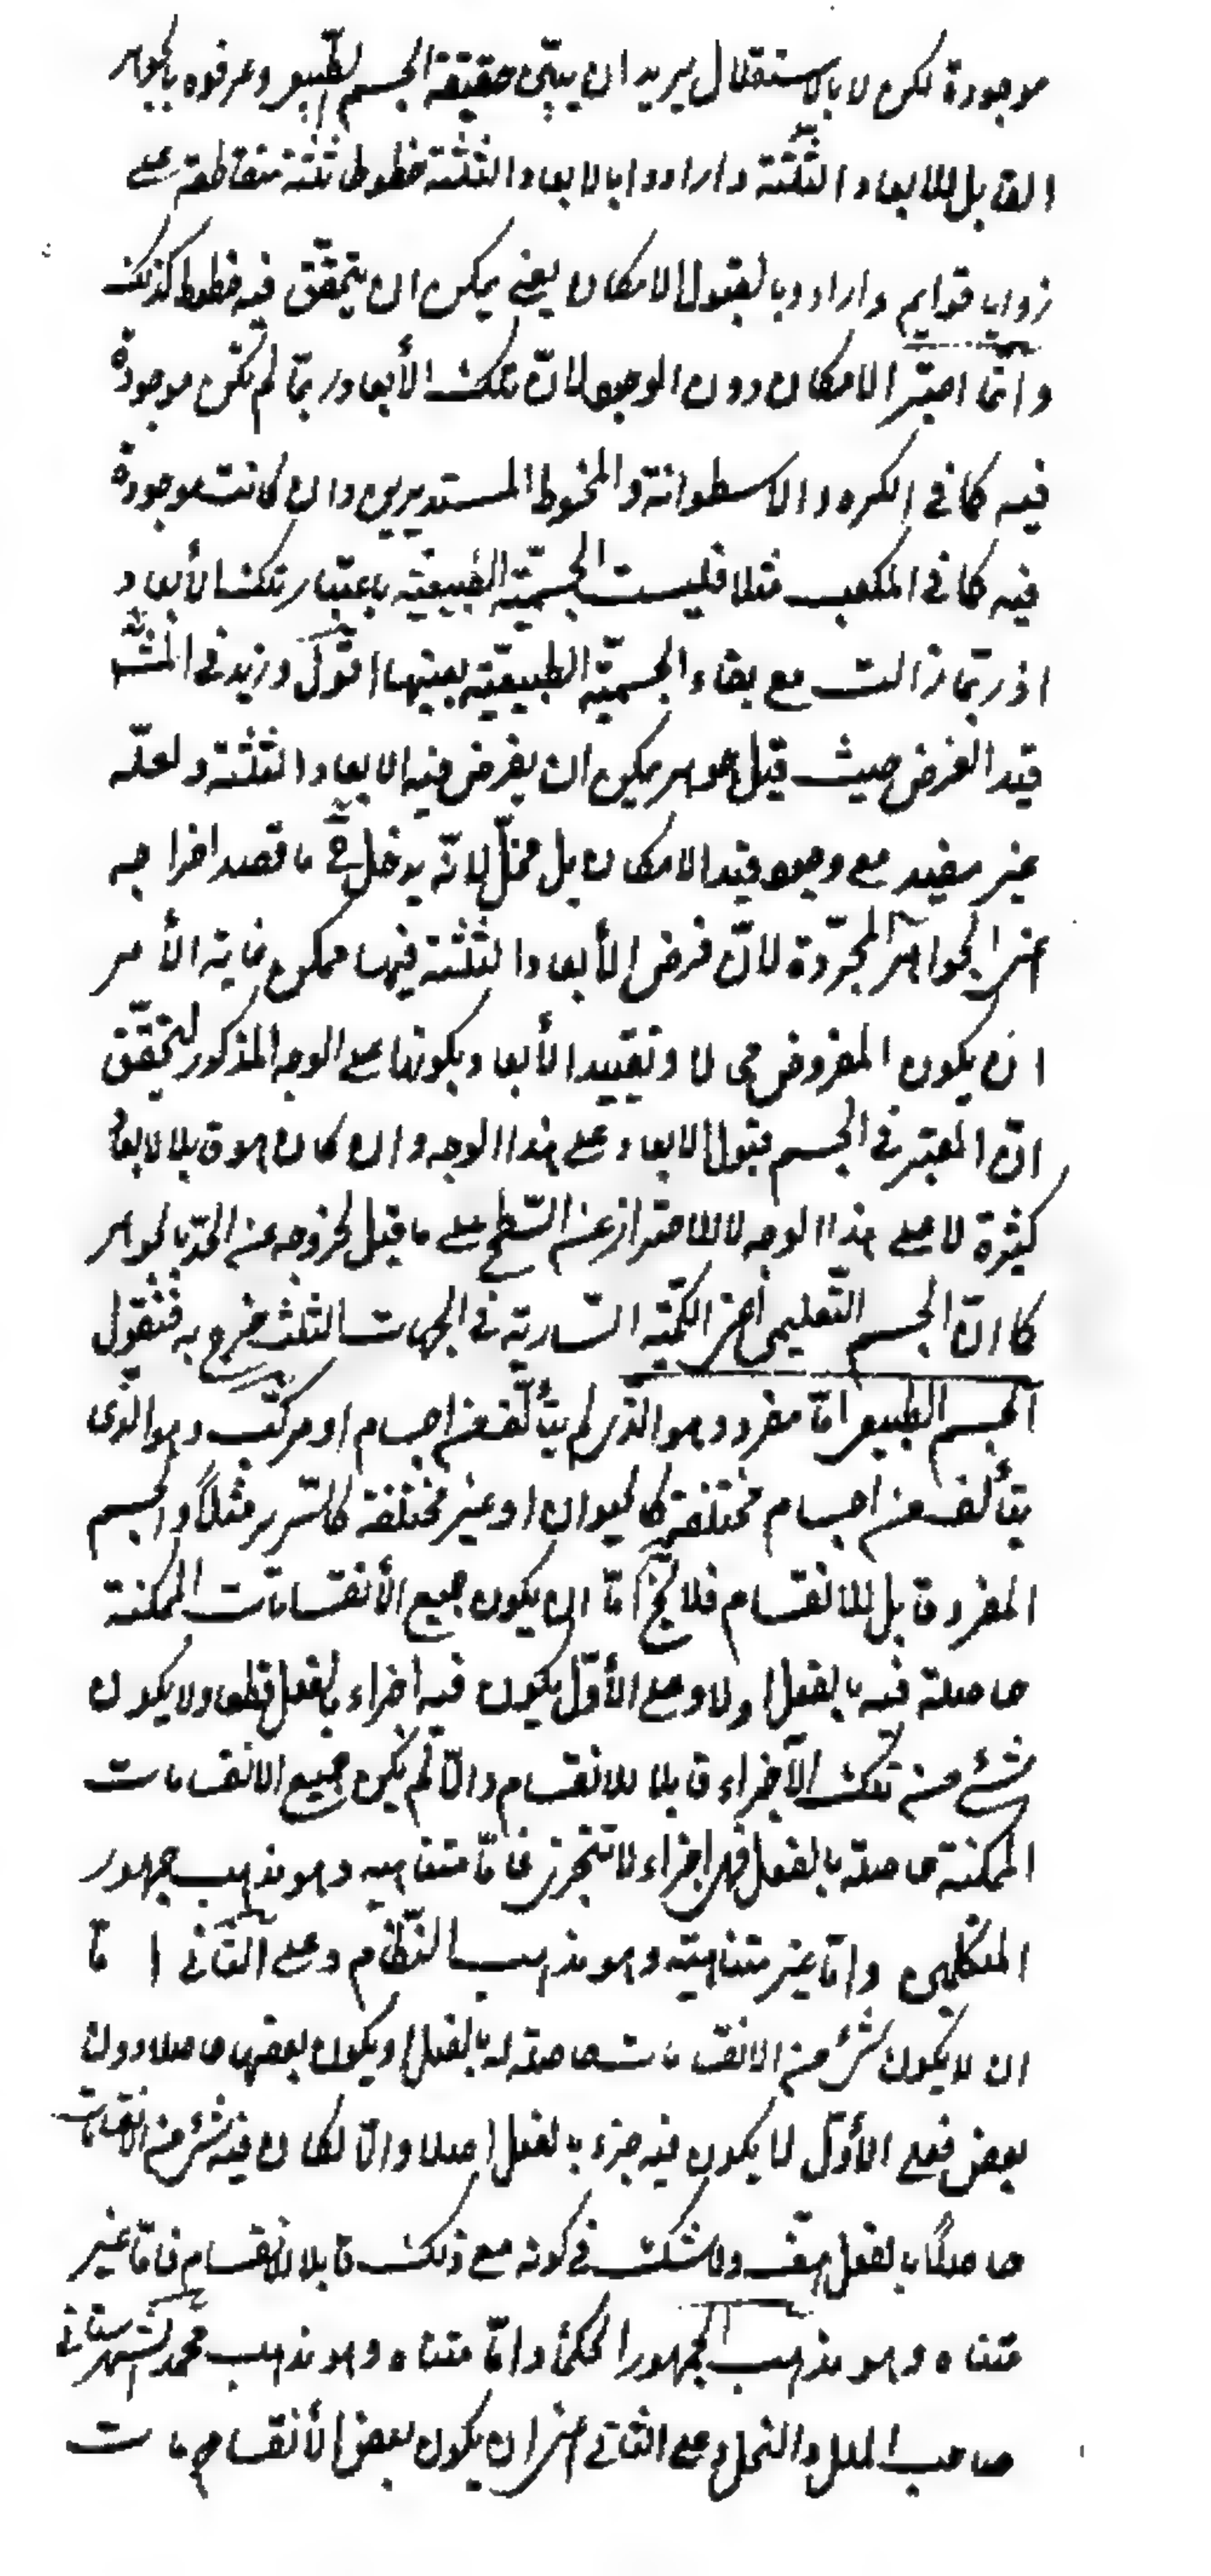 موجودة لكن لا بالاستقلال يريد ان يبيّن حقيقة الجسم الطبيعى وعرفوه بالجوهر
القابل للابعاد الثلثة وارادوا بالابعاد الثلثة خطوطا ثلثة متقاطعة على
زوايا قوايم وارادوا بالقبول الامكان يعنى يمكن ان يتحقّق فيه خطوط كذلك
وانّما اعتبر الامكان دون الوجود لانّ تلك الأبعاد ربّما لم تكن موجودة
فيه كما فى الكره والاسطوانة والمخروط المستديرين وان كانت موجودة
فيه كما فى المكعب مثلا فليست الجسميّة الطّبيعيّة باعتبار تلك الأبعاد
اذ ربّما زالت مع بقاء الجسميّة الطبيعيّة بعينها اقول وزيد فى المشهور
قيد الفرض حيث قيل جوهر يمكن ان يفرض فيه الابعاد الثلثة ولعلّه
غير مفيد مع وجود قيد الامكان بل مخلّ لانّه يدخل فى ما قصد اخراجه
اعنى الجواهر المجرّدة لانّ فرض الأبعاد الثلثة فيها ممكن غاية الأمر
ان يكون المفروض محالا وتقييد الأبعاد بكونها على الوجه المذكور لتحقّق
انّ المعتبر فى الجسم قبول الابعاد على هذا الوجه وان كان هو قابلا لابعاد
كثيرة لا على هذا الوجه لا للاحتراز عن السّطح على ما قيل لخروجه عن الحدّ بالجوهر
كما انّ الجسم التّعليمى أعنى الكمّية السّارية فى الجهات الثلث خرج به فنقول
الجسم الطبيعى امّا مفرد وهو الّذى لم يتألّف من اجسام او مركّب وهو الّذى
يتألف من اجسام مختلفة كالحيوان او غير مختلفة كالسّرير مثلًا والجسم
المفرد قابل للانقسام فلا يخ امّا ان يكون جميع الأنقسامات الممكنة
حاصلة فيه بالفعل اولا وعلى الأوّل يكون فيه اجزاء بالفعل قطعا ولا يكون
شئ من تلك الأجزاء قابلا للانقسام والّا لم يكن جميع الانقسامات
الممكنة حاصلة بالفعل فهى اجزاء لا تتجزى فامّا متناهيه وهو مذهب جمهور
المتكلمين وامّا غير متناهيّة وهو مذهب النّظام وعلى الثّانى امّا
ان لا يكون شئ من الانقسامات حاصلة له بالفعل او يكون بعضها حاصلا دون
بعض فعلى الأوّل لا يكون فيه جزء بالفعل اصلا والّا لكان فيه شئ من الانقسامات
حاصلًا بالفعل هف ولا شك فى كونه مع ذلك قابلا للانقسام فامّا غير
متناه وهو مذهب الجمهور الحكماء وامّا متناه وهو مذهب محمّد الشهرستانى
صاحب الملل والنحل وعلى الثّانى اعنى ان يكون بعض الأنقسامات